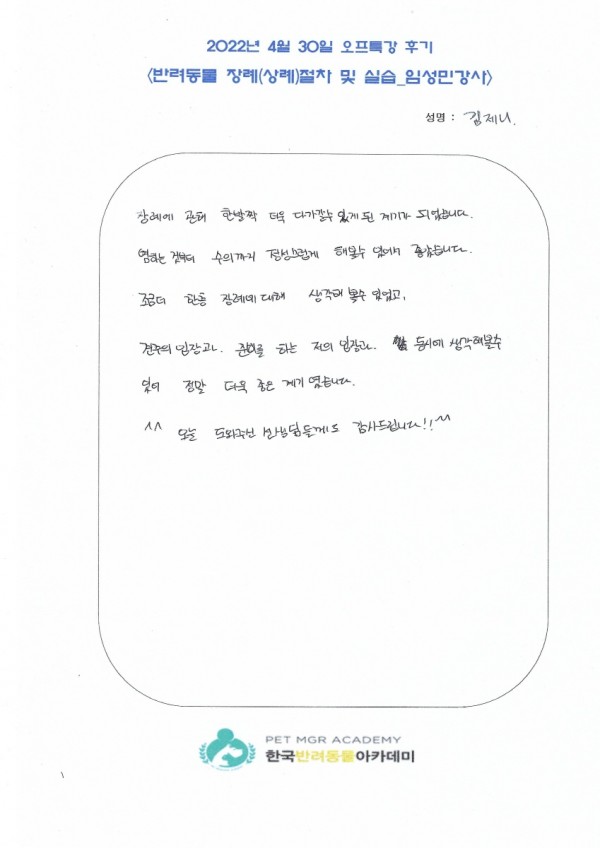 2022년 4월 30일 오프특강 후기
<반려동물 장례(상례)절차 및 실습_임성민강사>
성명 : 김제니.
장례에 관해 한발짝 더욱 다가갈수 있게 된 계기가 되었습니다.
염하는 것부터 수의까지 정성스럽게 해볼수 있어서 좋았습니다.
조금더 한층 장례에 대해 생각해 볼수 있었고,
견주의 입장과. 준비를 하는 저의 입장과. 동시에 생각해볼수
있어 정말 더욱 좋은 계기 였습니다.
^^ 오늘 도와주신 선생님들께도 감사드립니다!! ^^
PET MGR ACADEMY
한국반려동물아카데미